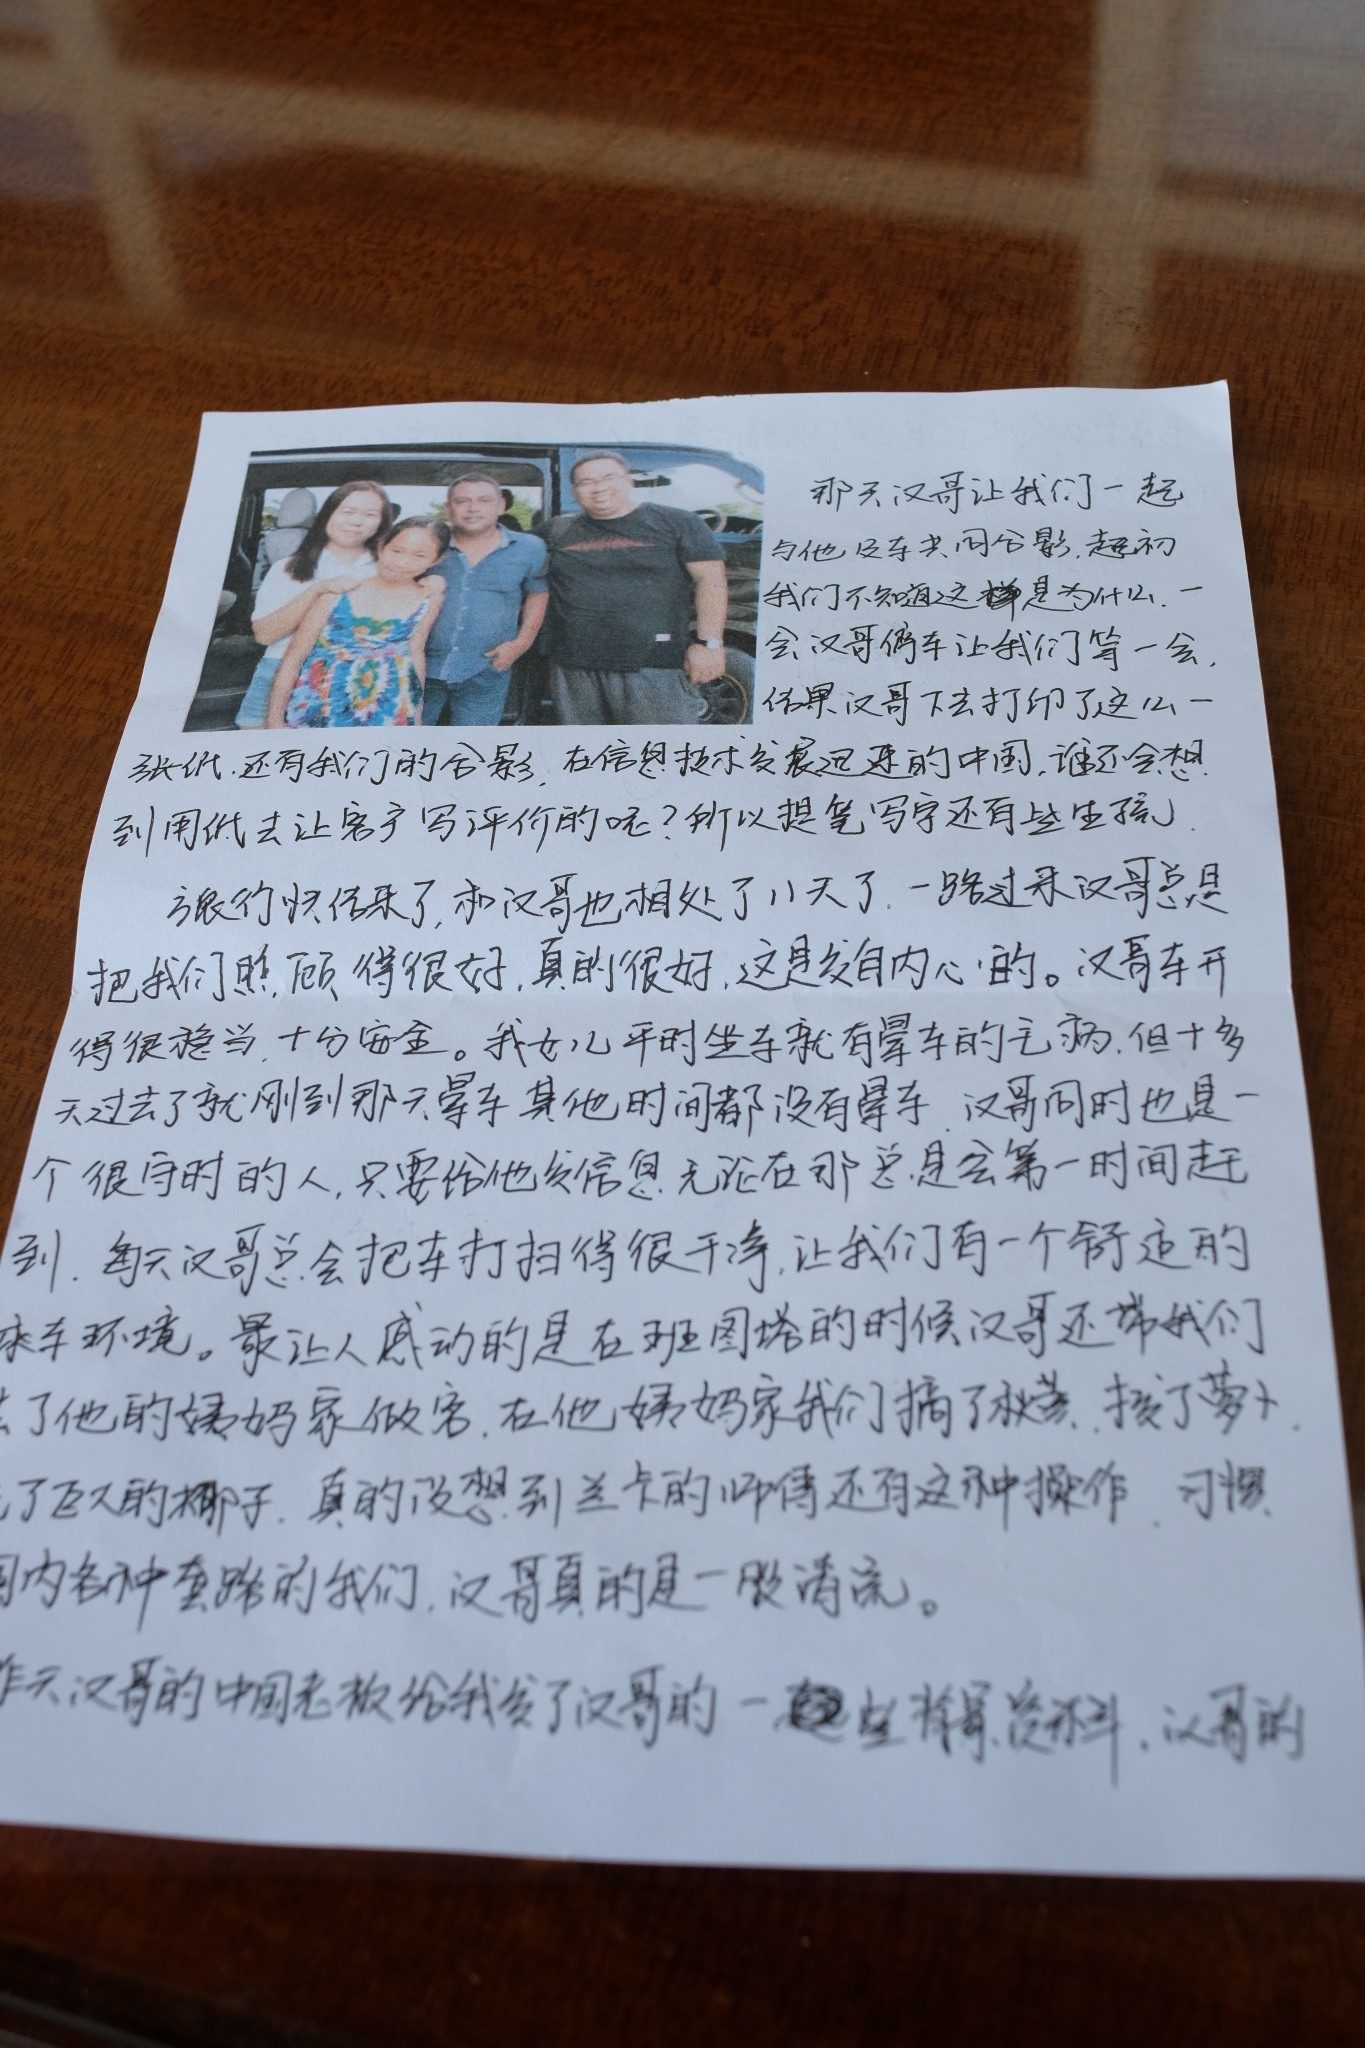 那天汉哥让我们一起
与他及车共同合影,起初
我们不知道这样是为什么.一
会汉哥停车让我们等一会,
结果汉哥下去打印了这么一
张纸.还有我们的合影,在信息技术发展迅速的中国,谁还会想
到用纸去让客户写评价的呢?所以提笔写字还有些生疏.
旅行快结束了,和汉哥也相处了八天了.一路过来汉哥总是
把我们照顾得很好,真的很好,这是发自内心的。汉哥车开
得很稳当,十分安全。我女儿平时坐车就有晕车的毛病,但十多
天过去了就刚到那天晕车其他时间都没有晕车,汉哥同时也是一
个很守时的人,只要给他发信息无论在那总是会第一时间赶
到,每天汉哥总会把车打扫得很干净,让我们有一个舒适的
乘车环境。最让人感动的是在班图塔的时候汉哥还带我们
去了他的姨妈家做客,在他姨妈家我们摘了秋葵,拔了萝卜,
了巨大的椰子,真的没想到兰卡的师傅还有这种操作,习惯
国内各种套路的我们,汉哥真的是一股清流。
昨天汉哥的中国老板给我发了汉哥的一些背景资料,汉哥的